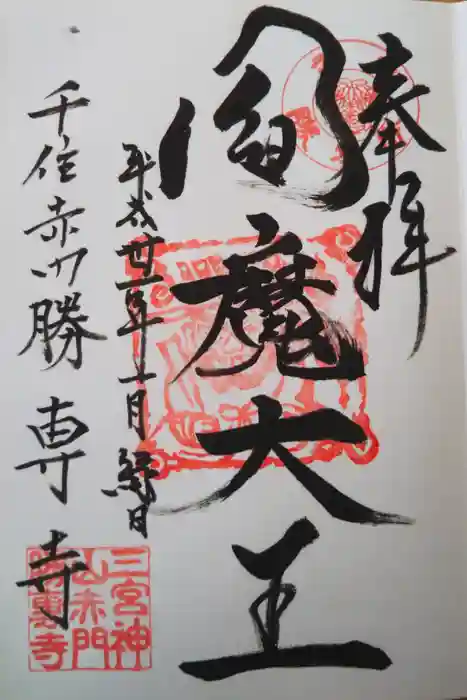 奉拝
閻魔大王
平成卅一年一月 縁日
千住赤門勝専寺
三宮神
山赤門
勝專寺